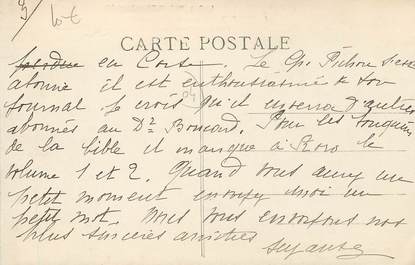 CARTE POSTALE
perdue en Cors. Le Gl. Pichon s'est
abonné il est enthousiasmé de son
journal je crois qu'il enverra d'autres
abonnés au Dr. Boucard. Pour les bouquins
de la bible il manque à Roro le
volume 1 et 2. Quand vous aurez un
petit moment envoyez moi un
petit mot. Nous vous envoyons nos
plus sincères amitiés
Suzanne